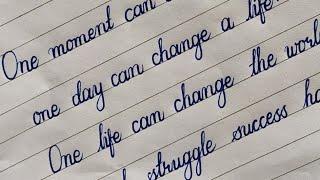 One moment can
one day can change a life.
One life can change the world
struggle success